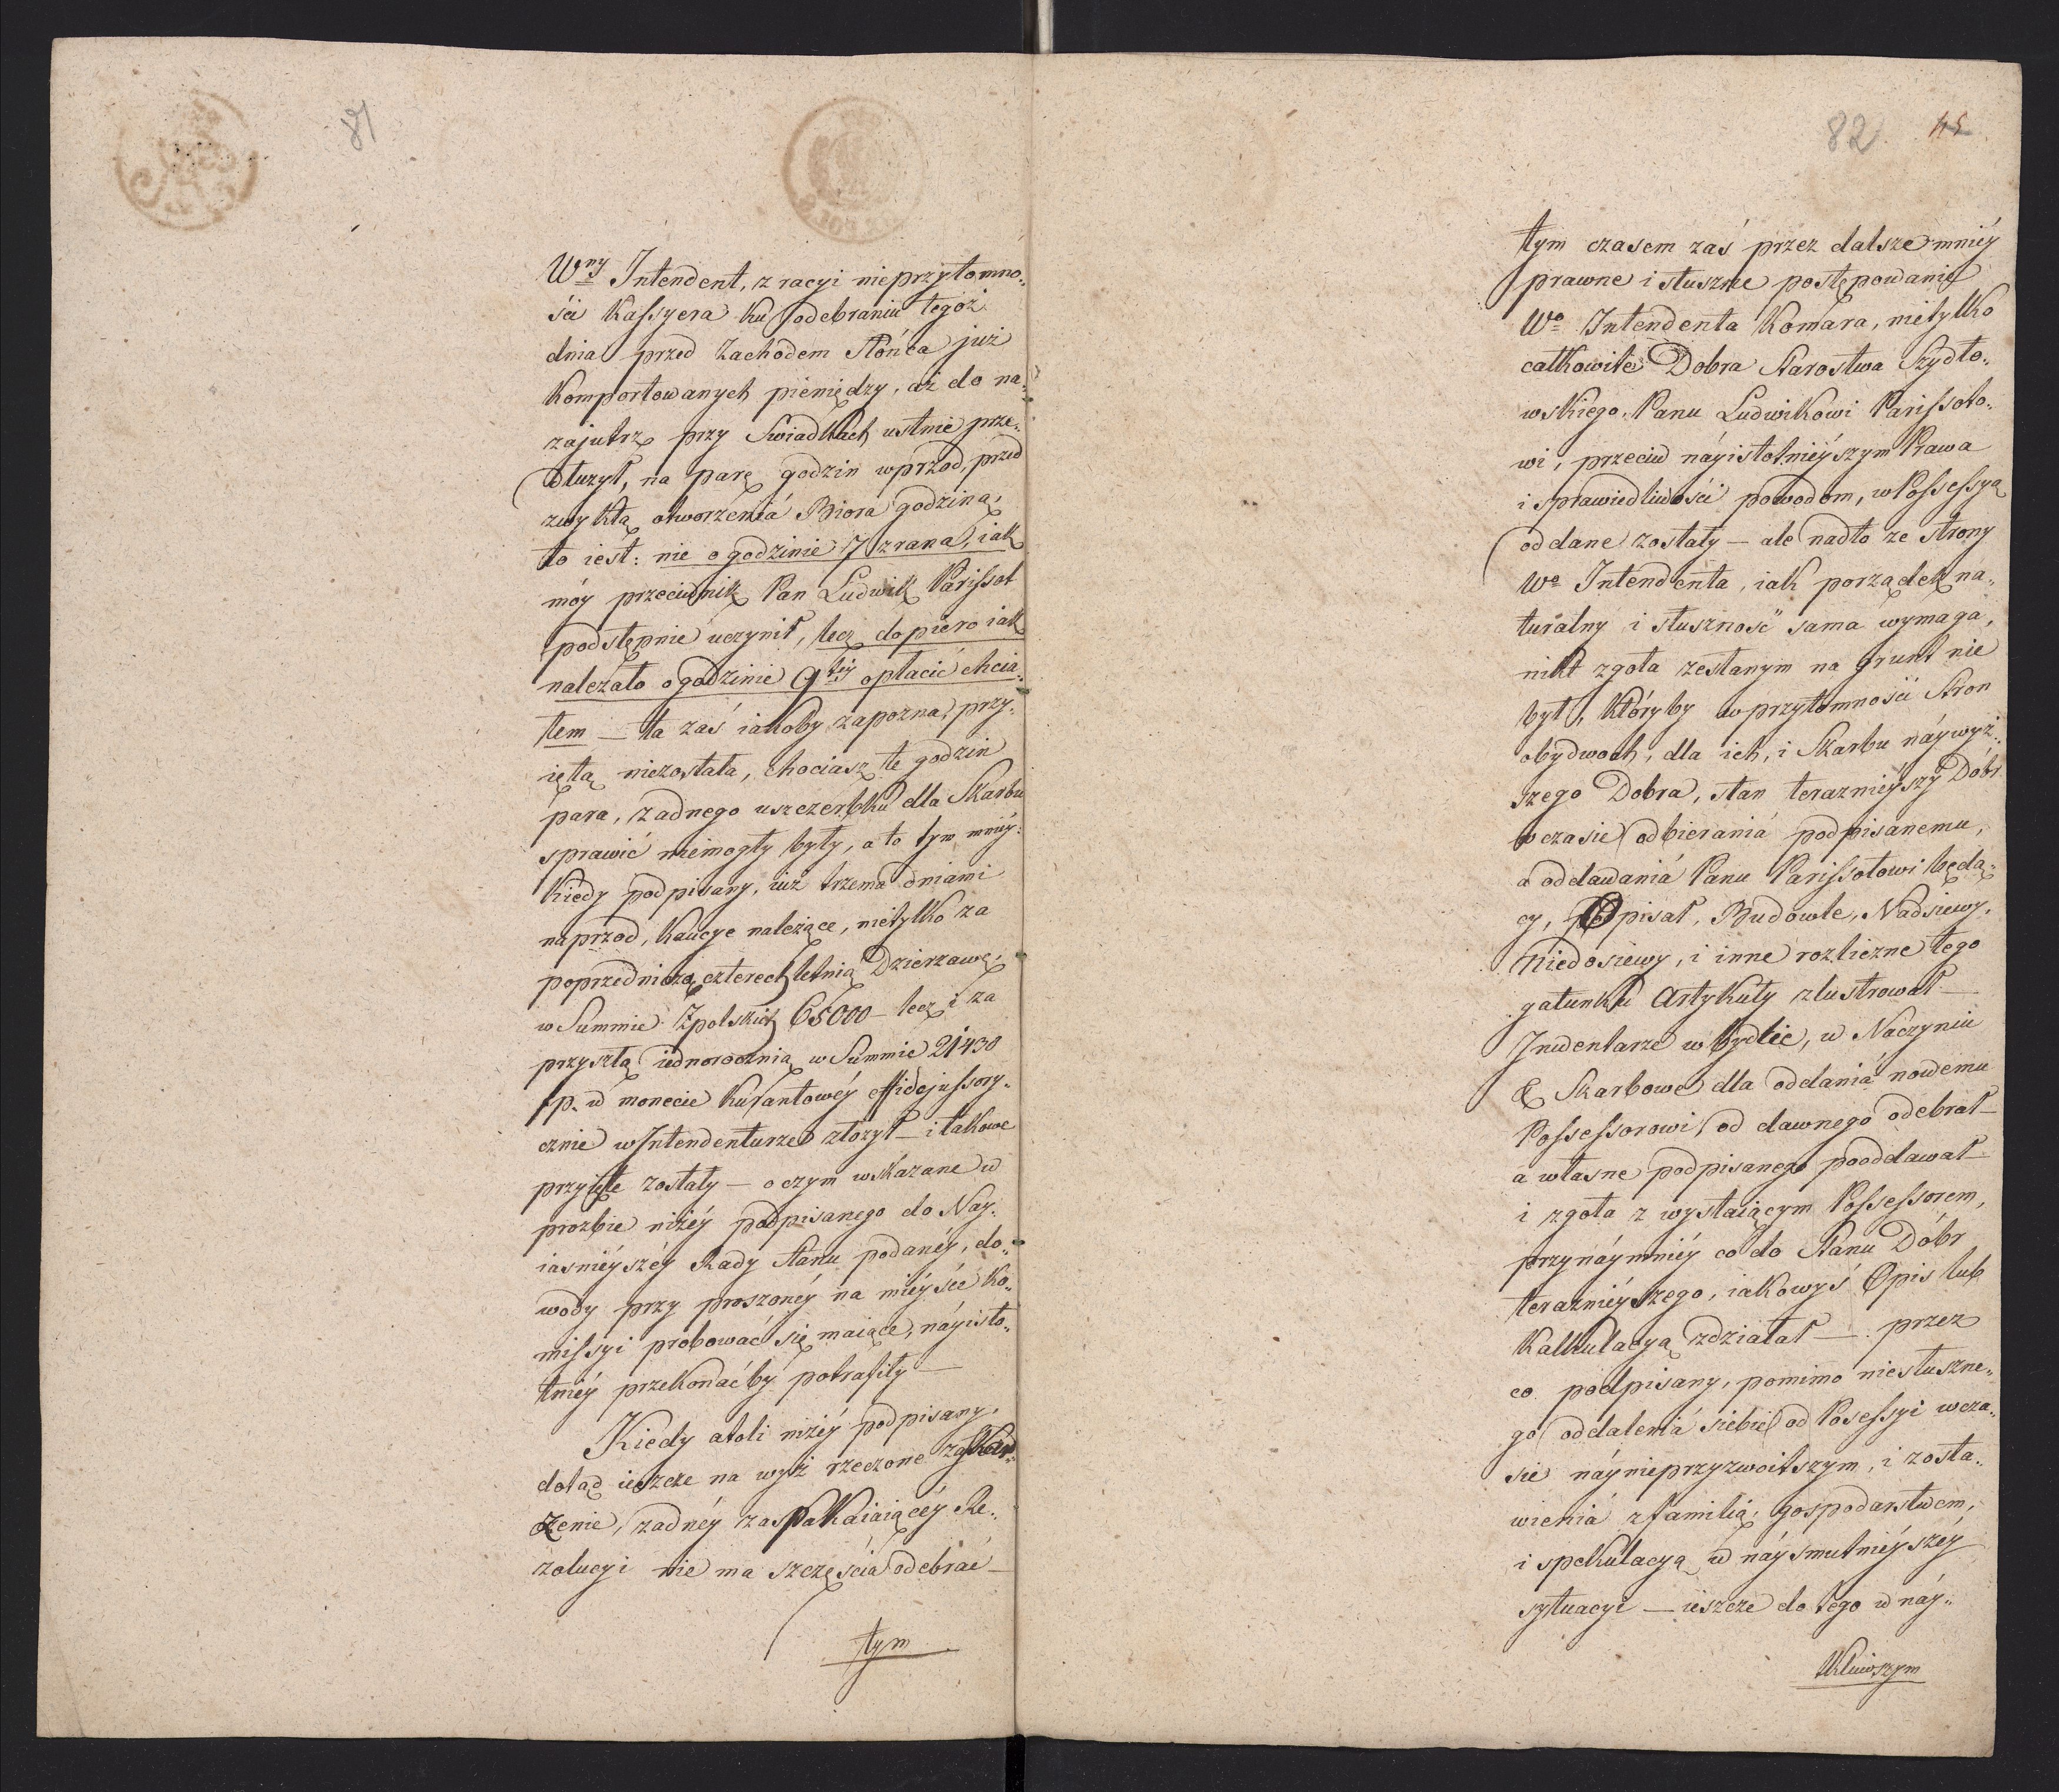 81
Wny Intendent, z racyi nieprzytomno„
ści Kassyera ku odebraniu tegoż
dnia przed zachodem Słońca już
komportowanych pieniędzy, aż do na„
zajutrz przy Swiadkach ustnie prze„
dłużył, na parę godzin wprzod, przed
zwykłą otworzéniá Biora godziną,
to iest: nie o godzinie 7 zrana, iak
móy przeciwnik Pan Ludwik Parissot
podstępnie uczynił, lecz dopiero iak
należało o godzinie 9téy opłacić chcia„
łem — ta zaś iakoby zapozna, przy„
iętą niezostała, chociasz te godzin
para, żadnego uszczerbku dla Skarbu
sprawić niemogły były, a to tym mniéy
kiedy podpisany, iuż trzema dniami
naprzod, kaucye należące, nietylko za
poprzedniczą czterechletnią Dzierżawę,
w Summie Zpolskich 65000 — lecz i za
przyszłą iednoroczną w Summie 21430
fp. w monecie kurantowéy Fidejussory„
cznie w Intendenturze złożył — i takowe
przyięte zostały — o czym wskazane w
prozbie niżéy podpisanego do Nay„
iaśniéyszéy Rady Stanu podanéy, do„
wody przy proszonéy na miéysce Ko„
missyi probować się maiące, náyisto„
tniéy przekonać by potrafiły —
Kiedy atoli niżéy podpisany,
dotąd ieszcze na wyż rzeczone zaskar„
żenie, żadnéy zaspakaiaiącéy Re„
zolucyi nie ma szczęścia odebrać —
tym
82 45
tym czasem zaś przez dalsze mniéy
prawne i słuszne postępowanie
Wo Intendenta Komara, nietylko
całkowite Dobra Starostwa Szydło„
wskiego, Panu Ludwikowi Parissoto„
wi, przeciw náyistotniéyszym Prawa
i sprawiedliwości powodom, w Possessyą
oddane zostały — ale nadto ze strony
Wo Intendenta, iak porządek na„
turalny i słuszność sama wymaga,
nikt zgoła zesłanym na grunt nie
był, któryby w przytomności Stron
obydwoch, dla ich, i Skarbu náywyż„
szego Dobra, stan teraznieyszy Dóbr
w czasie odbieraniá podpisanemu,
a oddawaniá Panu Parissotowi będą„
cy, opisał, Budowle, Nadsiewy,
Niedosiewy, i inne rozliczne tego
gatunku Artykuły zlustrował —
Inwentarze w bydle, w Naczyniu
& Skarbowe dla oddaniá nowemu
Possessorowi od dawnego odebrał —
a własne podpisanego pooddawał —
i zgoła z wystaiącym Possessorem,
przynáymniéy co do Stanu Dóbr
teraznieyszego, iakowyś Opis lub
Kalkulacyą zdziałał — przez
co podpisany, pomimo niesłuszne„
go oddaleniá siebie od Posessyi wcza„
sie náynieprzyzwoitszym, i zosta„
wieniá z familią, gospodarstwem,
i spekulacyą w náysmutniéyszéy
sytuacyi — ieszcze do tego w náy„